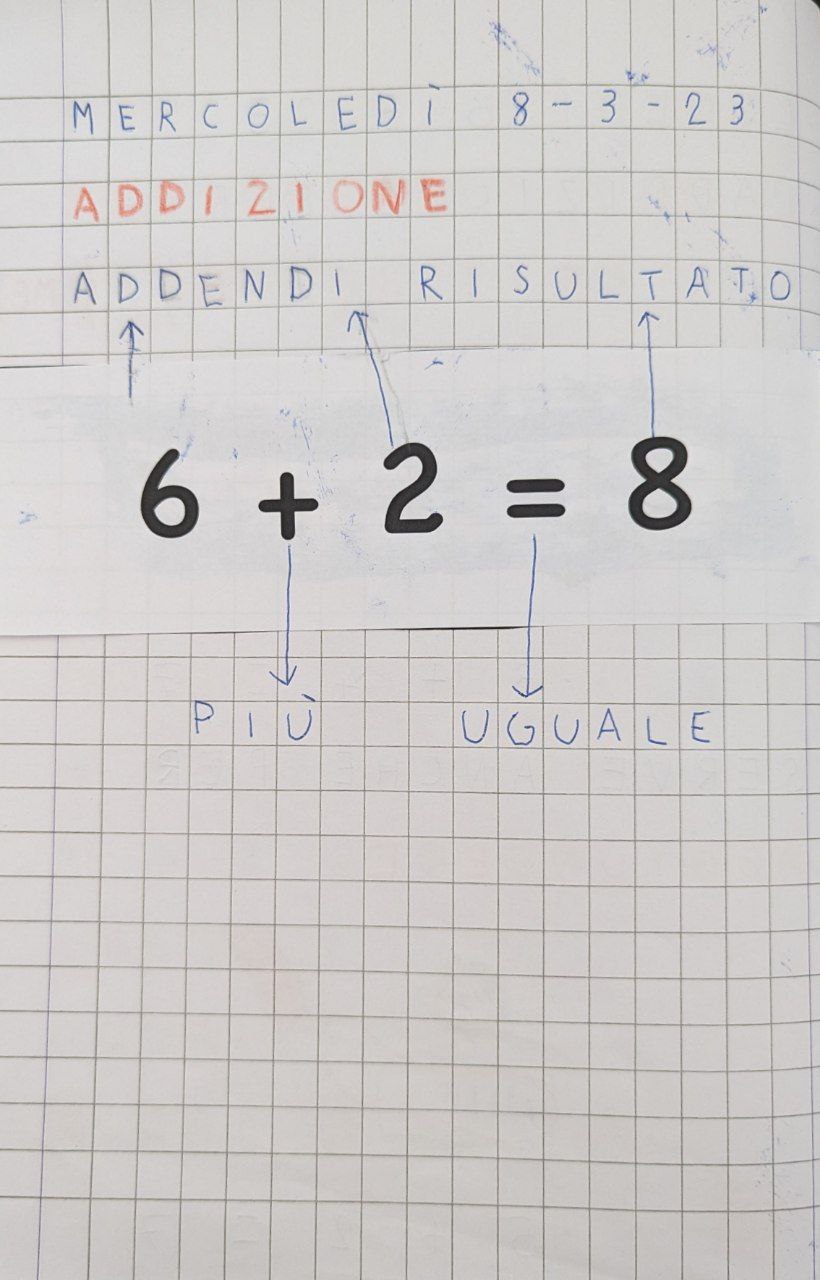 MERCOLEDÌ 8-3-23
ADDIZIONE
ADDENDI RISULTATO
6 + 2 = 8
PIÙ UGUALE